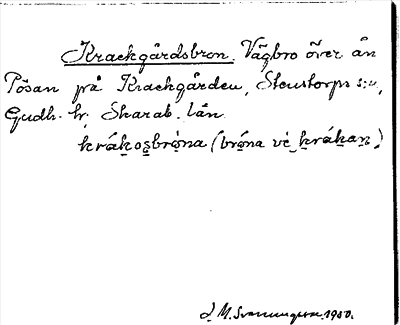 Kraekgårdsbron. Vägbro över ån
Pösan på Kraekgården, Stenstorps s:n,
Gudh. hr, Skarab. län.
kråkosbrọ́na (brọ́na vé kråkan)
J. M. Svenungsson 1930.